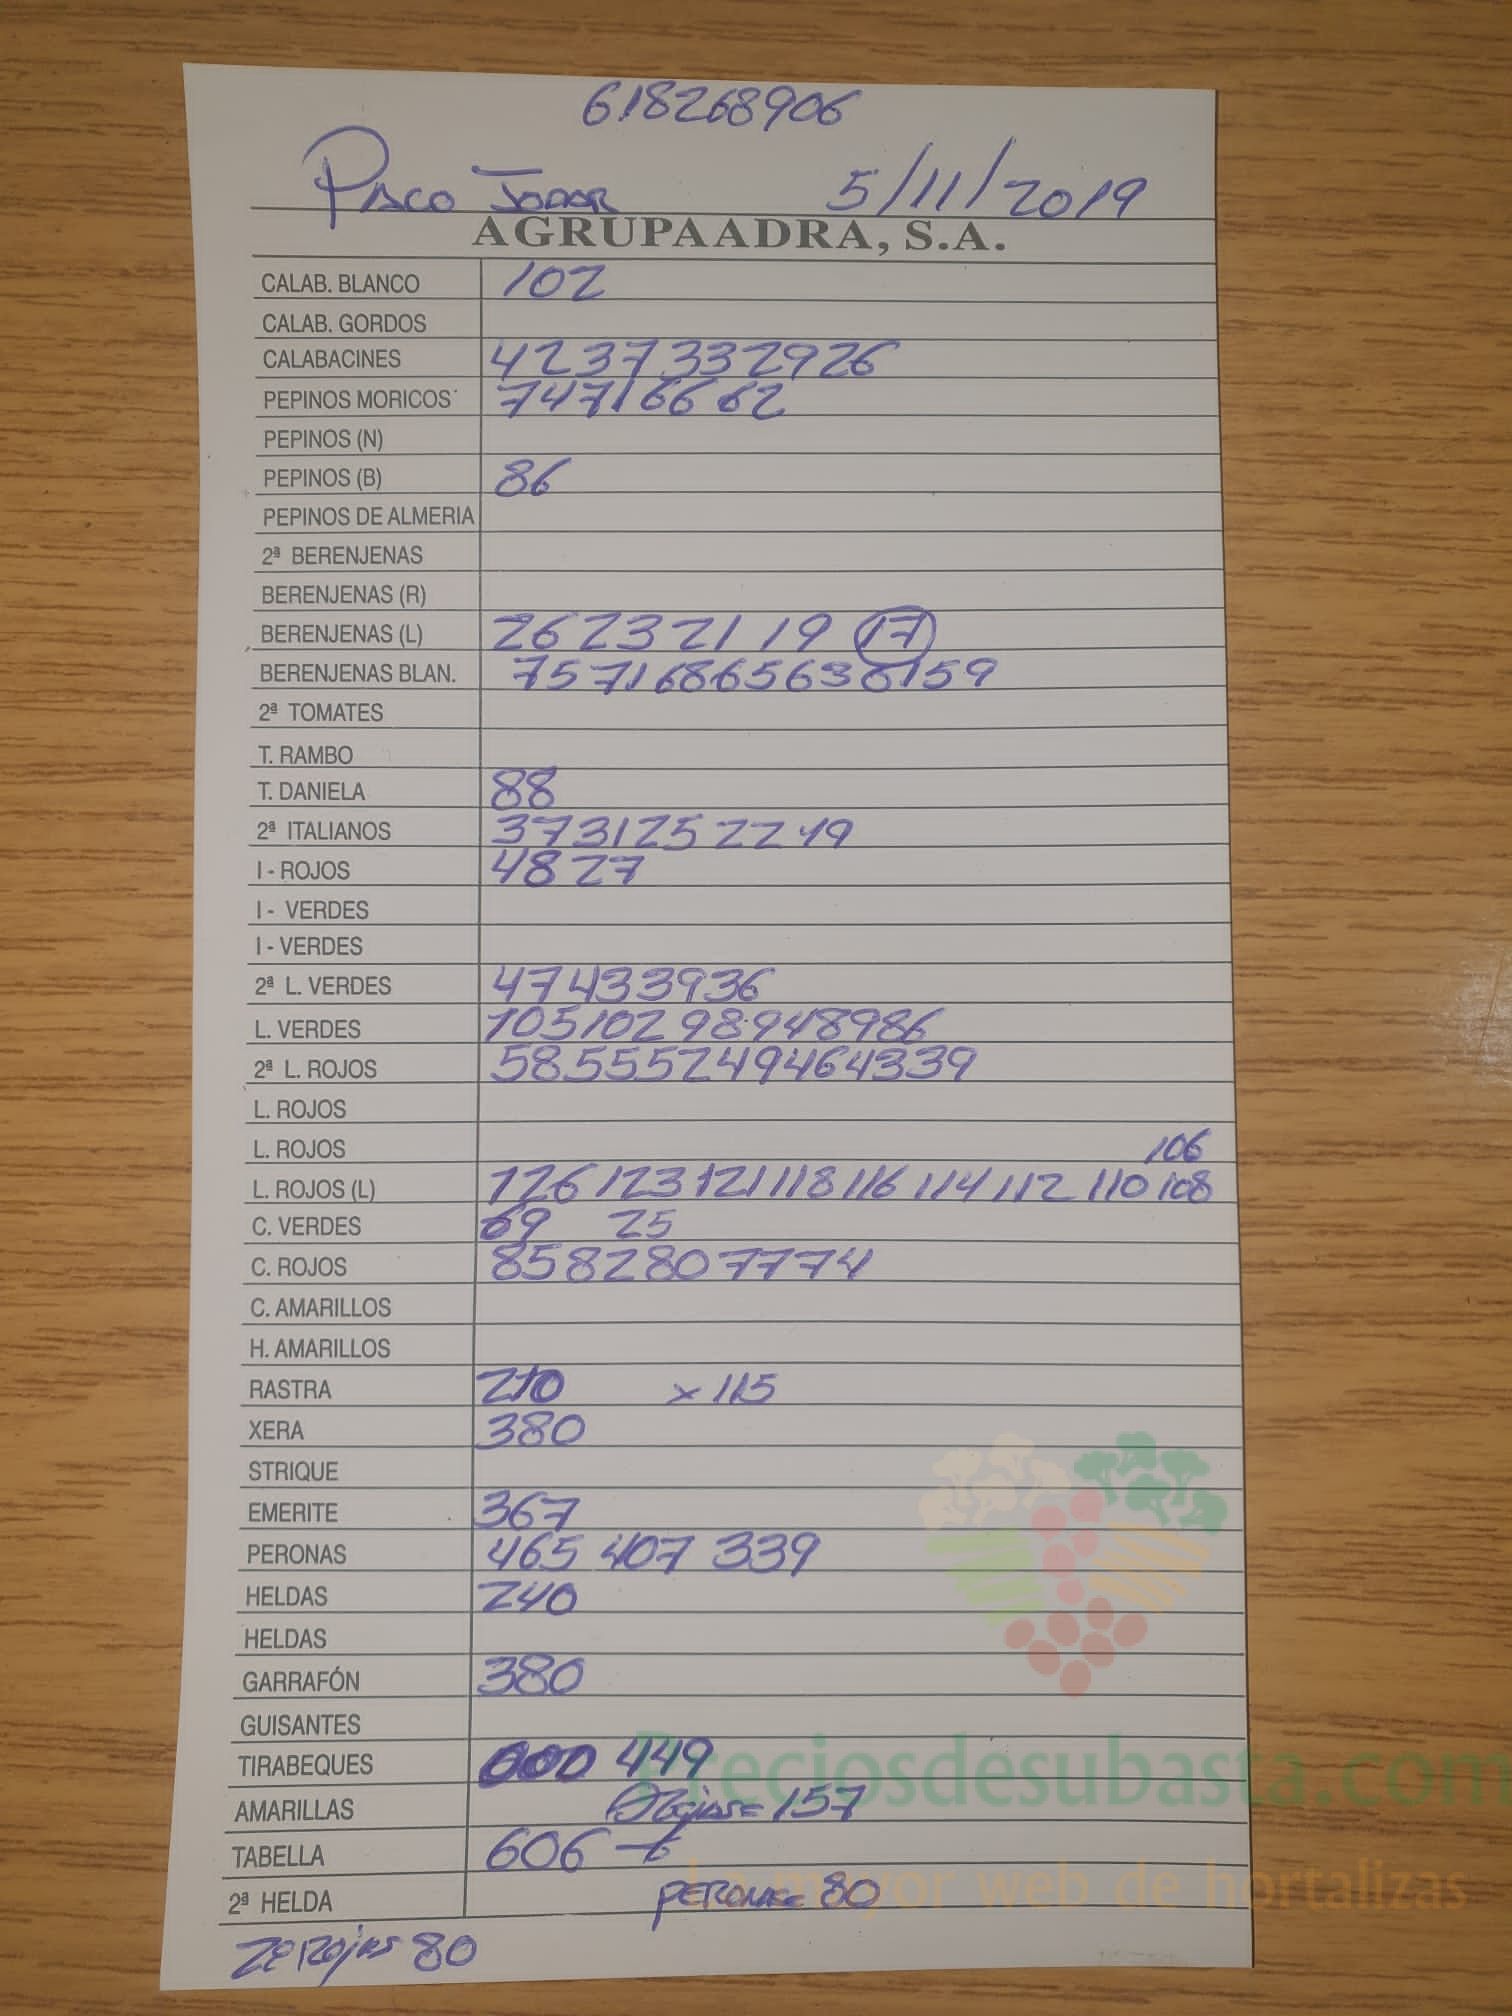 618268906
PACO JODAR 5/11/2019
AGRUPAADRA, S.A.
CALAB. BLANCO 102
CALAB. GORDOS
CALABACINES 42 37 33 29 26
PEPINOS MORICOS 74 71 66 62
PEPINOS (N)
PEPINOS (B) 86
PEPINOS DE ALMERIA
2ª BERENJENAS
BERENJENAS (R)
BERENJENAS (L) 26 23 21 19 17
BERENJENAS BLAN. 75 71 68 65 63 61 59
2ª TOMATES
T. RAMBO
T. DANIELA 88
2ª ITALIANOS 37 31 25 22 19
I - ROJOS 48 27
I - VERDES
I - VERDES
2ª L. VERDES 47 43 39 36
L. VERDES 105 102 98 94 89 86
2ª L. ROJOS 58 55 52 49 46 43 39
L. ROJOS
L. ROJOS 106
L. ROJOS (L) 126 123 121 118 116 114 112 110 108
C. VERDES 69 25
C. ROJOS 85 82 80 77 74
C. AMARILLOS
H. AMARILLOS
RASTRA 210 x 115
XERA 380
STRIQUE
EMERITE 367
PERONAS 465 407 339
HELDAS 240
HELDAS
GARRAFÓN 380
GUISANTES
TIRABEQUES 600 449
Preciosdesubasta.com
AMARILLAS 157
TABELLA 606
La mayor web de hortalizas
2ª HELDA 80
2ª ROjas 80